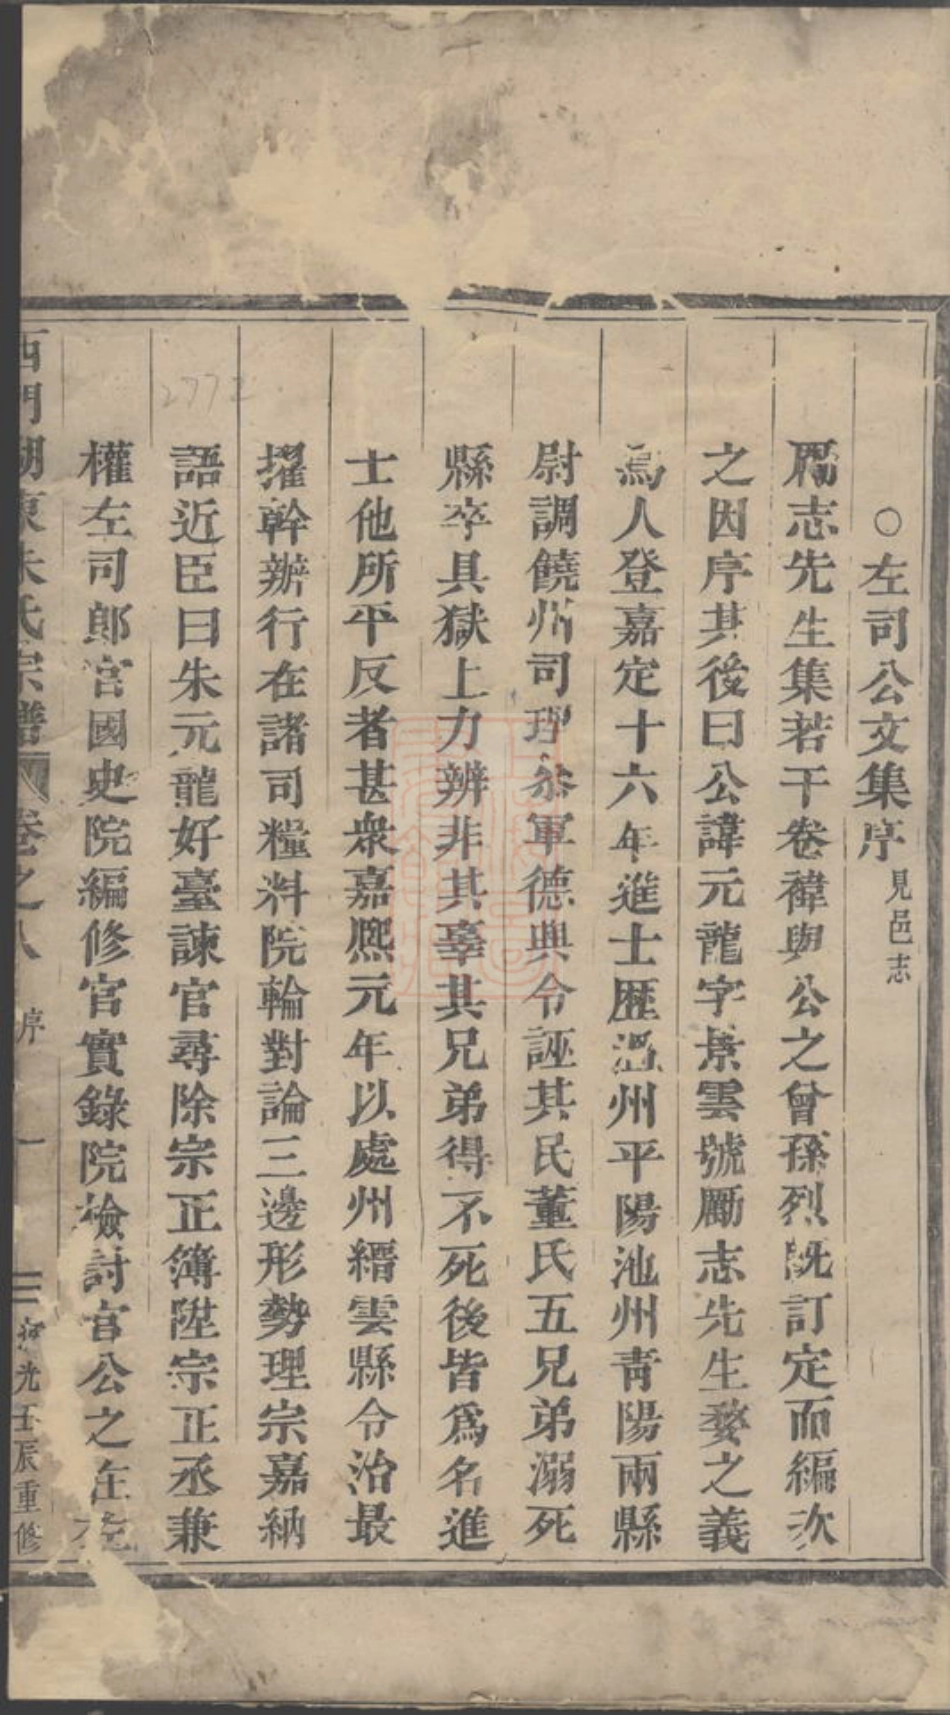 ○左司公文集序見邑志
厲志先生集若干卷禕與公之曾孫烈既訂定而編次
之因序其後曰公諱元龍字景雲號勵志先生婺之義
烏人登嘉定十六年進士歴溫州平陽池州青陽兩縣
尉調饒州司理叅軍德興令誣其民董氏五兄弟溺死
縣卒具獄上力辨非其辜其兄弟得不死後皆爲名進
士他所平反者甚衆嘉熈元年以處州縉雲縣令治最
擢幹辦行在諸司糧料院輪對論三邊形勢理宗嘉納
語近臣曰朱元龍好臺諫官尋除宗正簿陞宗正丞兼
權左司郞官國史院編修官實錄院檢討官公之在左
西門湖東朱氏宗譜 卷之八 序 一 光壬辰重修
2772